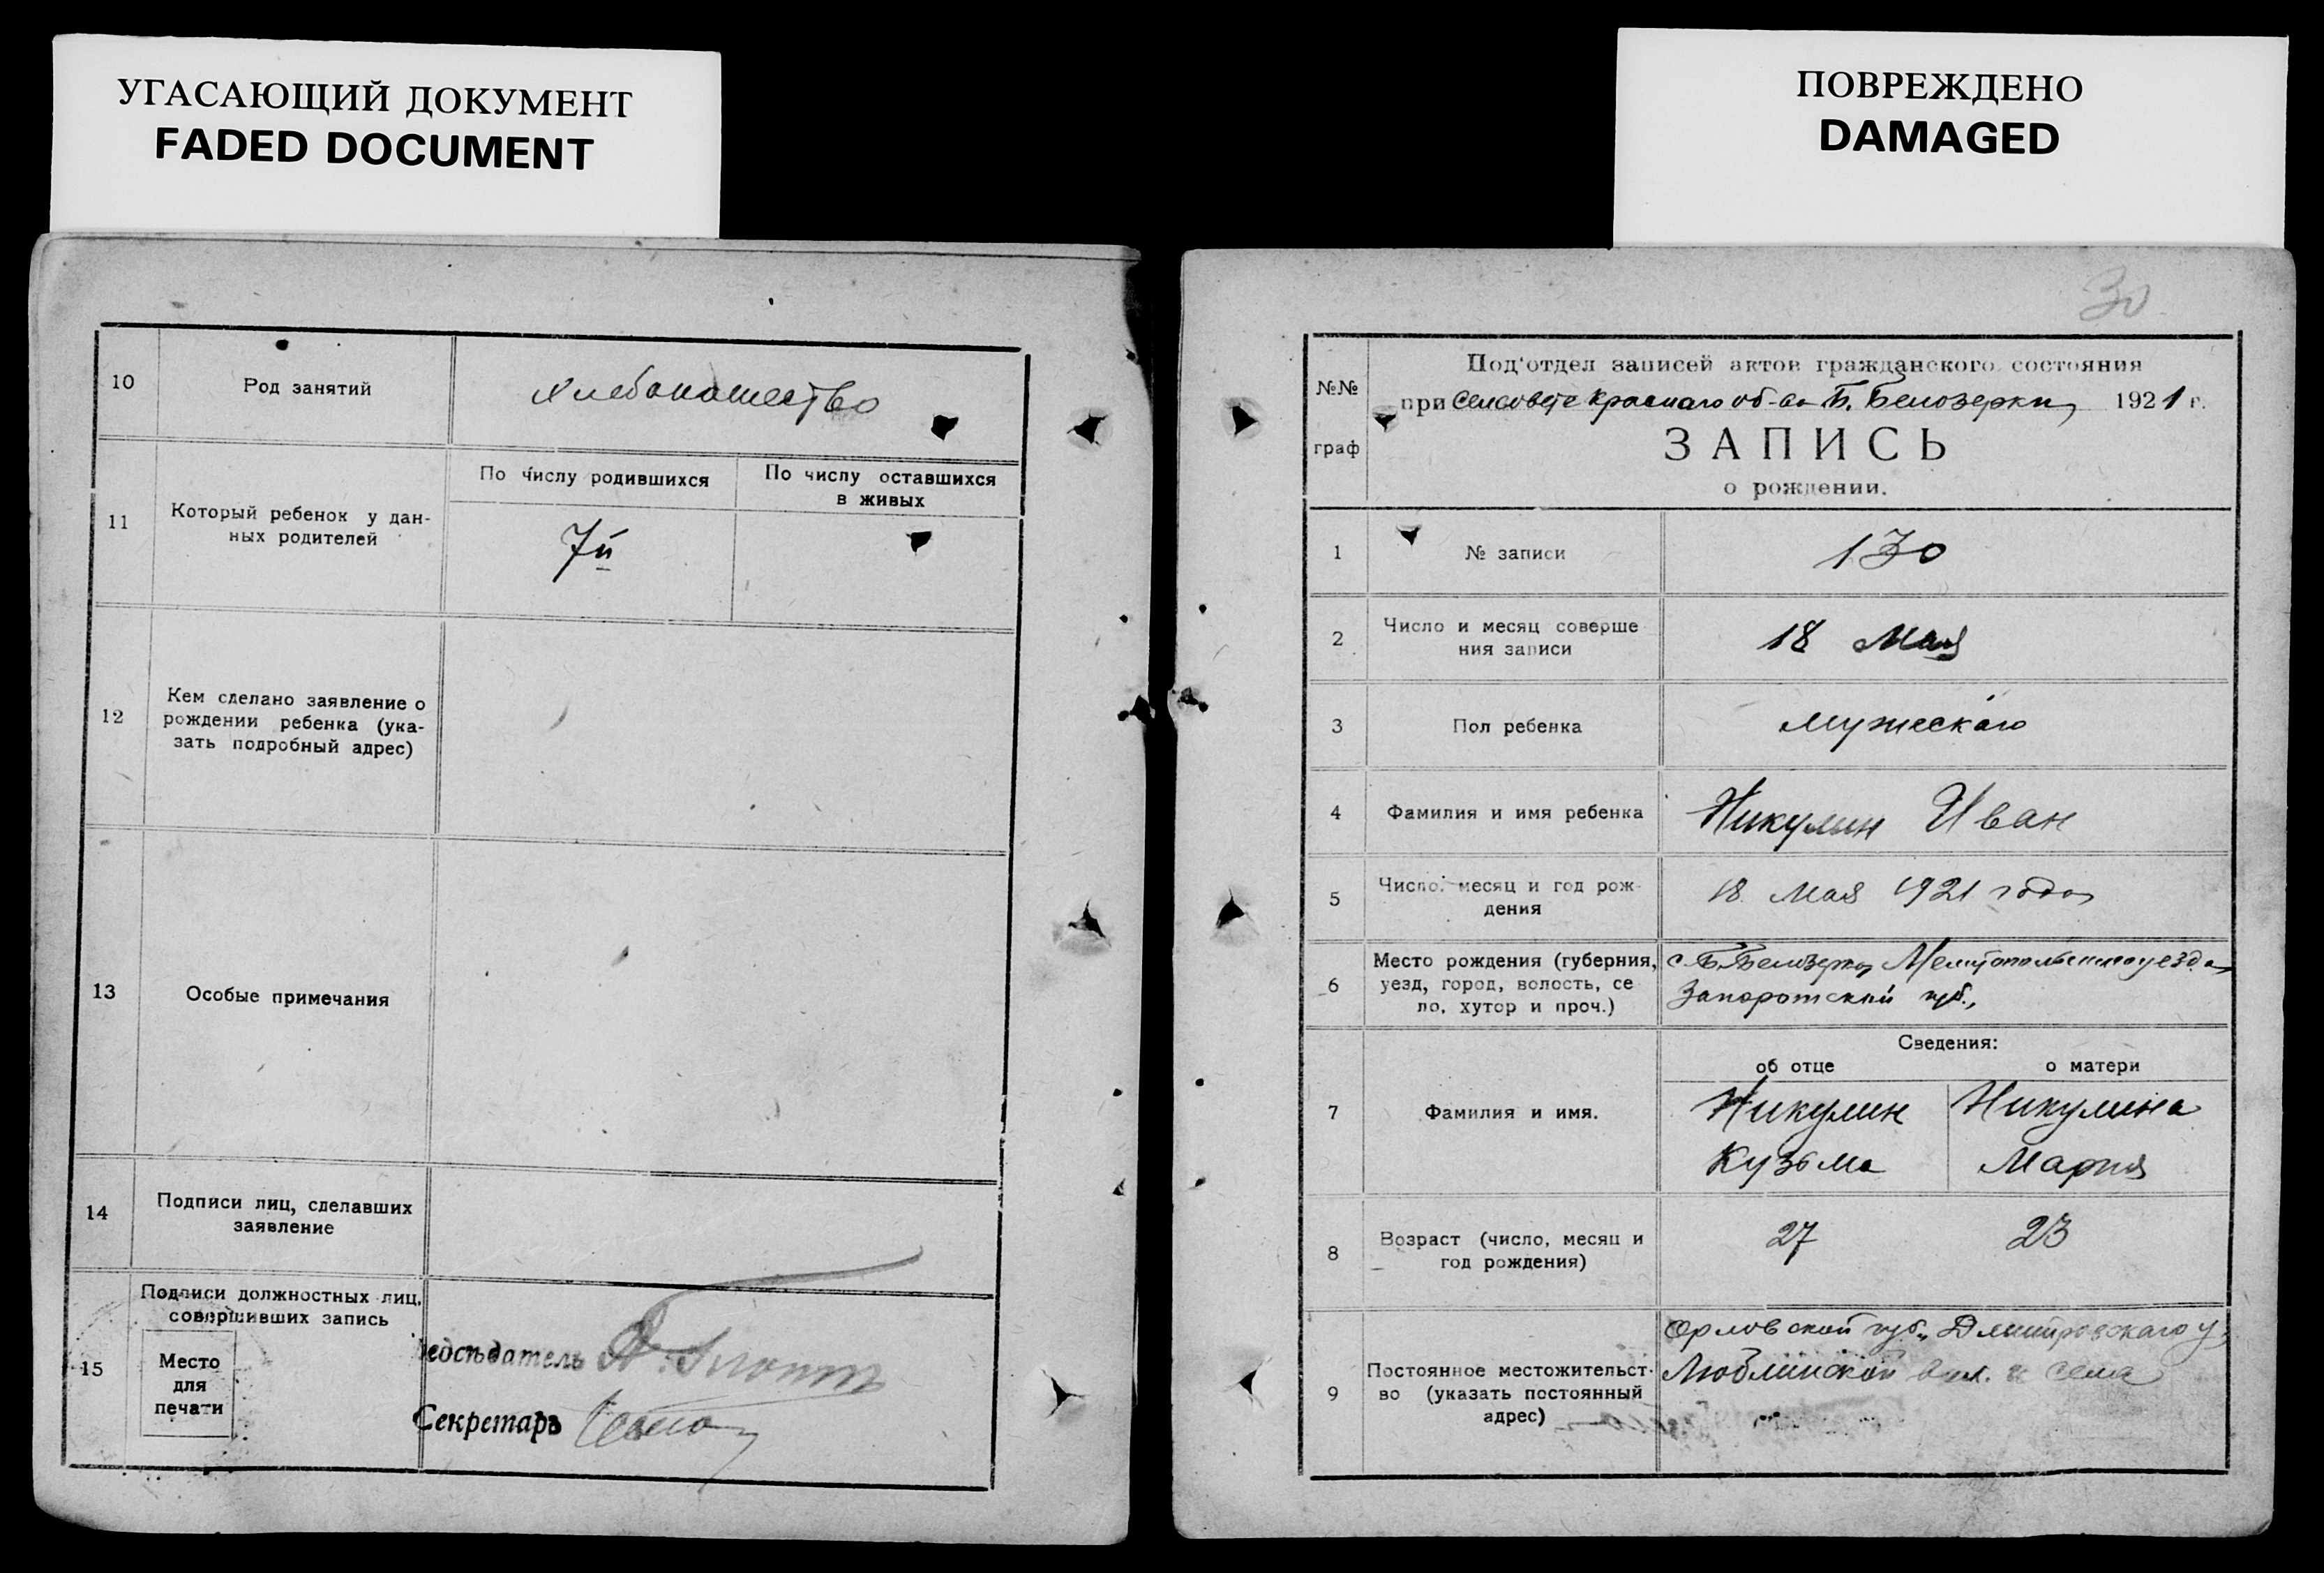 УГАСАЮЩИЙ ДОКУМЕНТ
FADED DOCUMENT
10
Род занятий
Хлебопашество
11
Который ребенок у дан-
ных родителей
По числу родившихся
По числу оставшихся
в живых
7й
12
Кем сделано заявление о
рождении ребенка (ука-
зать подробный адрес)
13
Особые примечания
14
Подписи лиц, сделавших
заявление
15
Подписи должностных лиц,
совершивших запись
Место
для
печати
едсѣдатель
Секретарь
ПОВРЕЖДЕНО
DAMAGED
30
№№
граф
Под'отдел записей актов гражданского состояния
при сельсовете Краснаго об-ва Б. Белозерки 1921 г.
ЗАПИСЬ
о рождении.
1
№ записи
130
2
Число и месяц соверше
ния записи
18 Мая
3
Пол ребенка
мужескаго
4
Фамилия и имя ребенка
Никулин Иван
5
Число, месяц и год рож-
дения
18 Мая 1921 года
6
Место рождения (губерния,
уезд, город, волость, се
ло, хутор и проч.)
с. Б. Белозерка Мелитопольского уезда
Запорожской губ.,
Сведения:
об отце
о матери
7
Фамилия и имя.
Никулин
Кузьма
Никулина
Мария
8
Возраст (число, месяц и
год рождения)
27
23
9
Постоянное местожительст-
во (указать постоянный
адрес)
Орловской губ., Дмитровскаго у,
Люблинской вол. и села